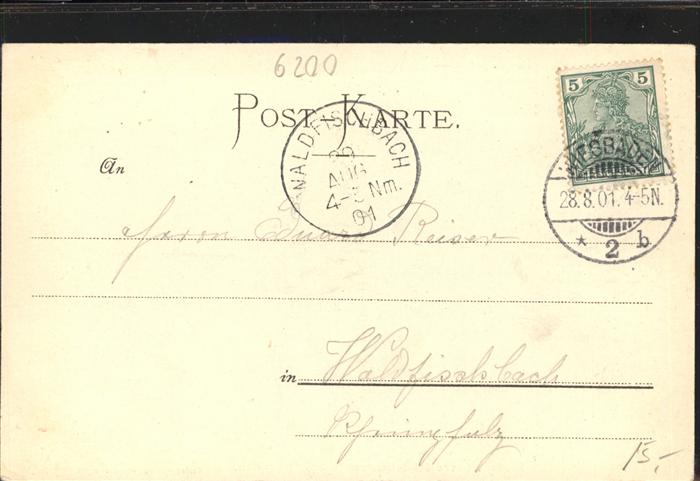 6200
POST-KARTE.
5 5
WALDFISCHBACH
29
AUG
4-5 Nm.
01
WIESBADEN
28.8.01. 4-5N.
* 2 b
An
Herrn Reiser
in Waldfischbach
Rheinpfalz
15,-